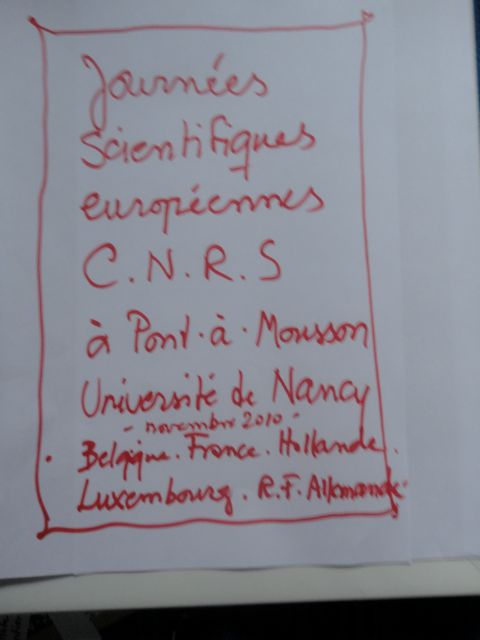 Journées
Scientifiques
européennes
C.N.R.S
à Pont-à-Mousson
Université de Nancy
- novembre 2010 -
Belgique. France. Hollande.
Luxembourg. R.F. Allemande